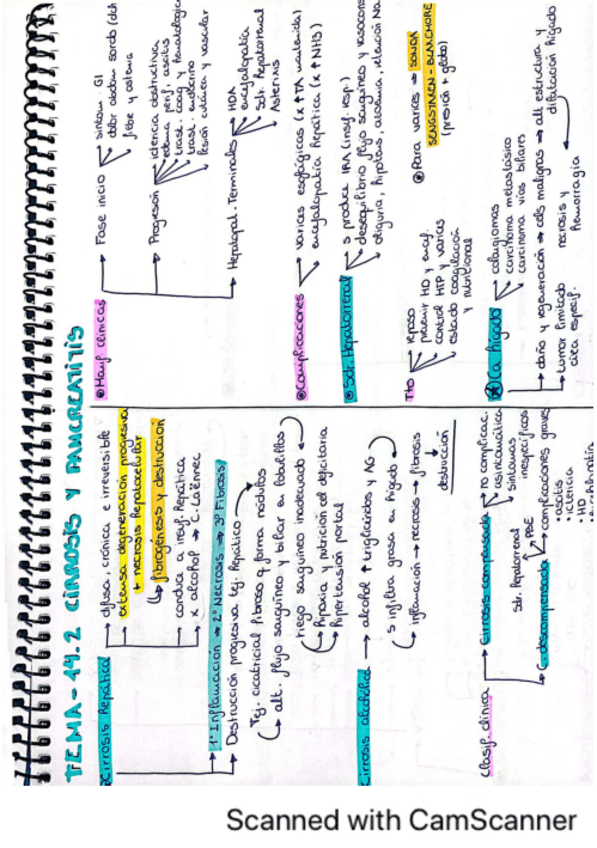 TEMA-14.2 CIRROSIS Y PANCREATITIS
Cirrosis Hepática
difusa, crónica e irreversible
extensa degeneración progresiva
+ necrosis hepatocelular
fibrogénesis y destrucción
conduce a insuf. Hepática
x alcohol → C. Läennec
1º Inflamación → 2º Necrosis → 3º Fibrosis
Destrucción progresiva tej. Hepático
Tej. cicatricial fibroso q forma nódulos
alt. flujo sanguíneo y biliar en lobulillos
riego sanguíneo inadecuado
Hipoxia y nutrición cel deficitaria
Hipertensión portal
Cirrosis alcohólica → alcohol ↑ triglicéridos y AG
s infiltra grasa en hígado
inflamación → necrosis → fibrosis
destrucción
Clasif. clínica
Cirrosis compensada
no complicac.
asintomática
síntomas
inespecíficos
Sdr. Hepatorrenal
PBE
C. descompensada → complicaciones graves
• ascitis
• ictericia
• HD
Manif. clínicas
Fase inicio
síntom. GI
dolor abdom sordo
fiebre y astenia
Progresión
ictericia obstructiva
edema perif. ascitis
trast. coag y hematológico
trast. endocrino
lesión cutánea y vascular
Hepatopat. Terminales
HDA
encefalopatía
Sdr. Hepatorrenal
Asterixis
Complicaciones
varices esofágicas (x ↑TA mantenida)
encefalopatía Hepática (x ↑NH3)
Sdr. Hepatorrenal
s produce IRA (insuf. resp.)
desequilibrio flujo sanguíneo y vasocons
oliguria, hipotens, azoemia, retención Na
Tto
reposo
prevenir HD y encef.
control HTP y varices
estado coagulación
y nutricional
Para varices → SONDA
SENGSTAKEN-BLANCHORE
(presión + globo)
Ca hígado
colagiomas
carcinoma metastásico
carcinoma vías biliares
daño y regeneración → cels malignas → alt estructura y
dilatación hígado
tumor limitado
área específ.
necrosis y
hemorragia
Scanned with CamScanner